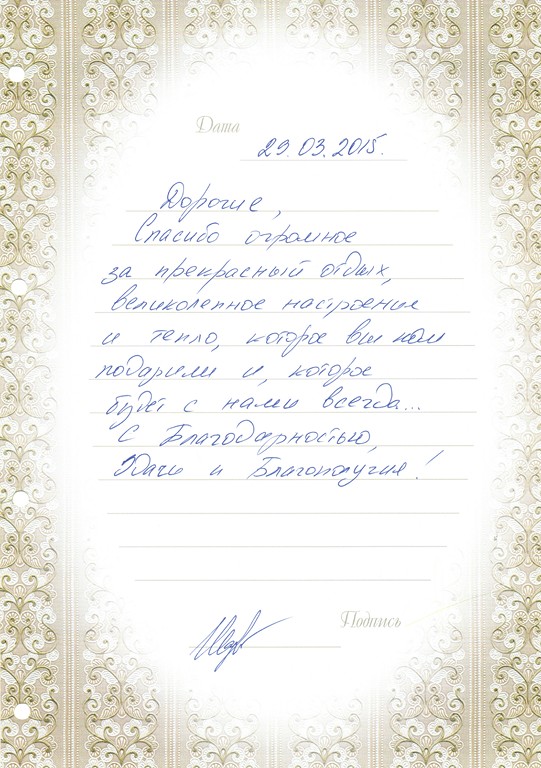 Дата
29.03.2015.
Дорогие,
Спасибо огромное
за прекрасный отдых,
великолепное настроение
и тепло, которое вы нам
подарили и, которое
будет с нами всегда...
С Благодарностью,
Удачи и Благополучия!
Подпись